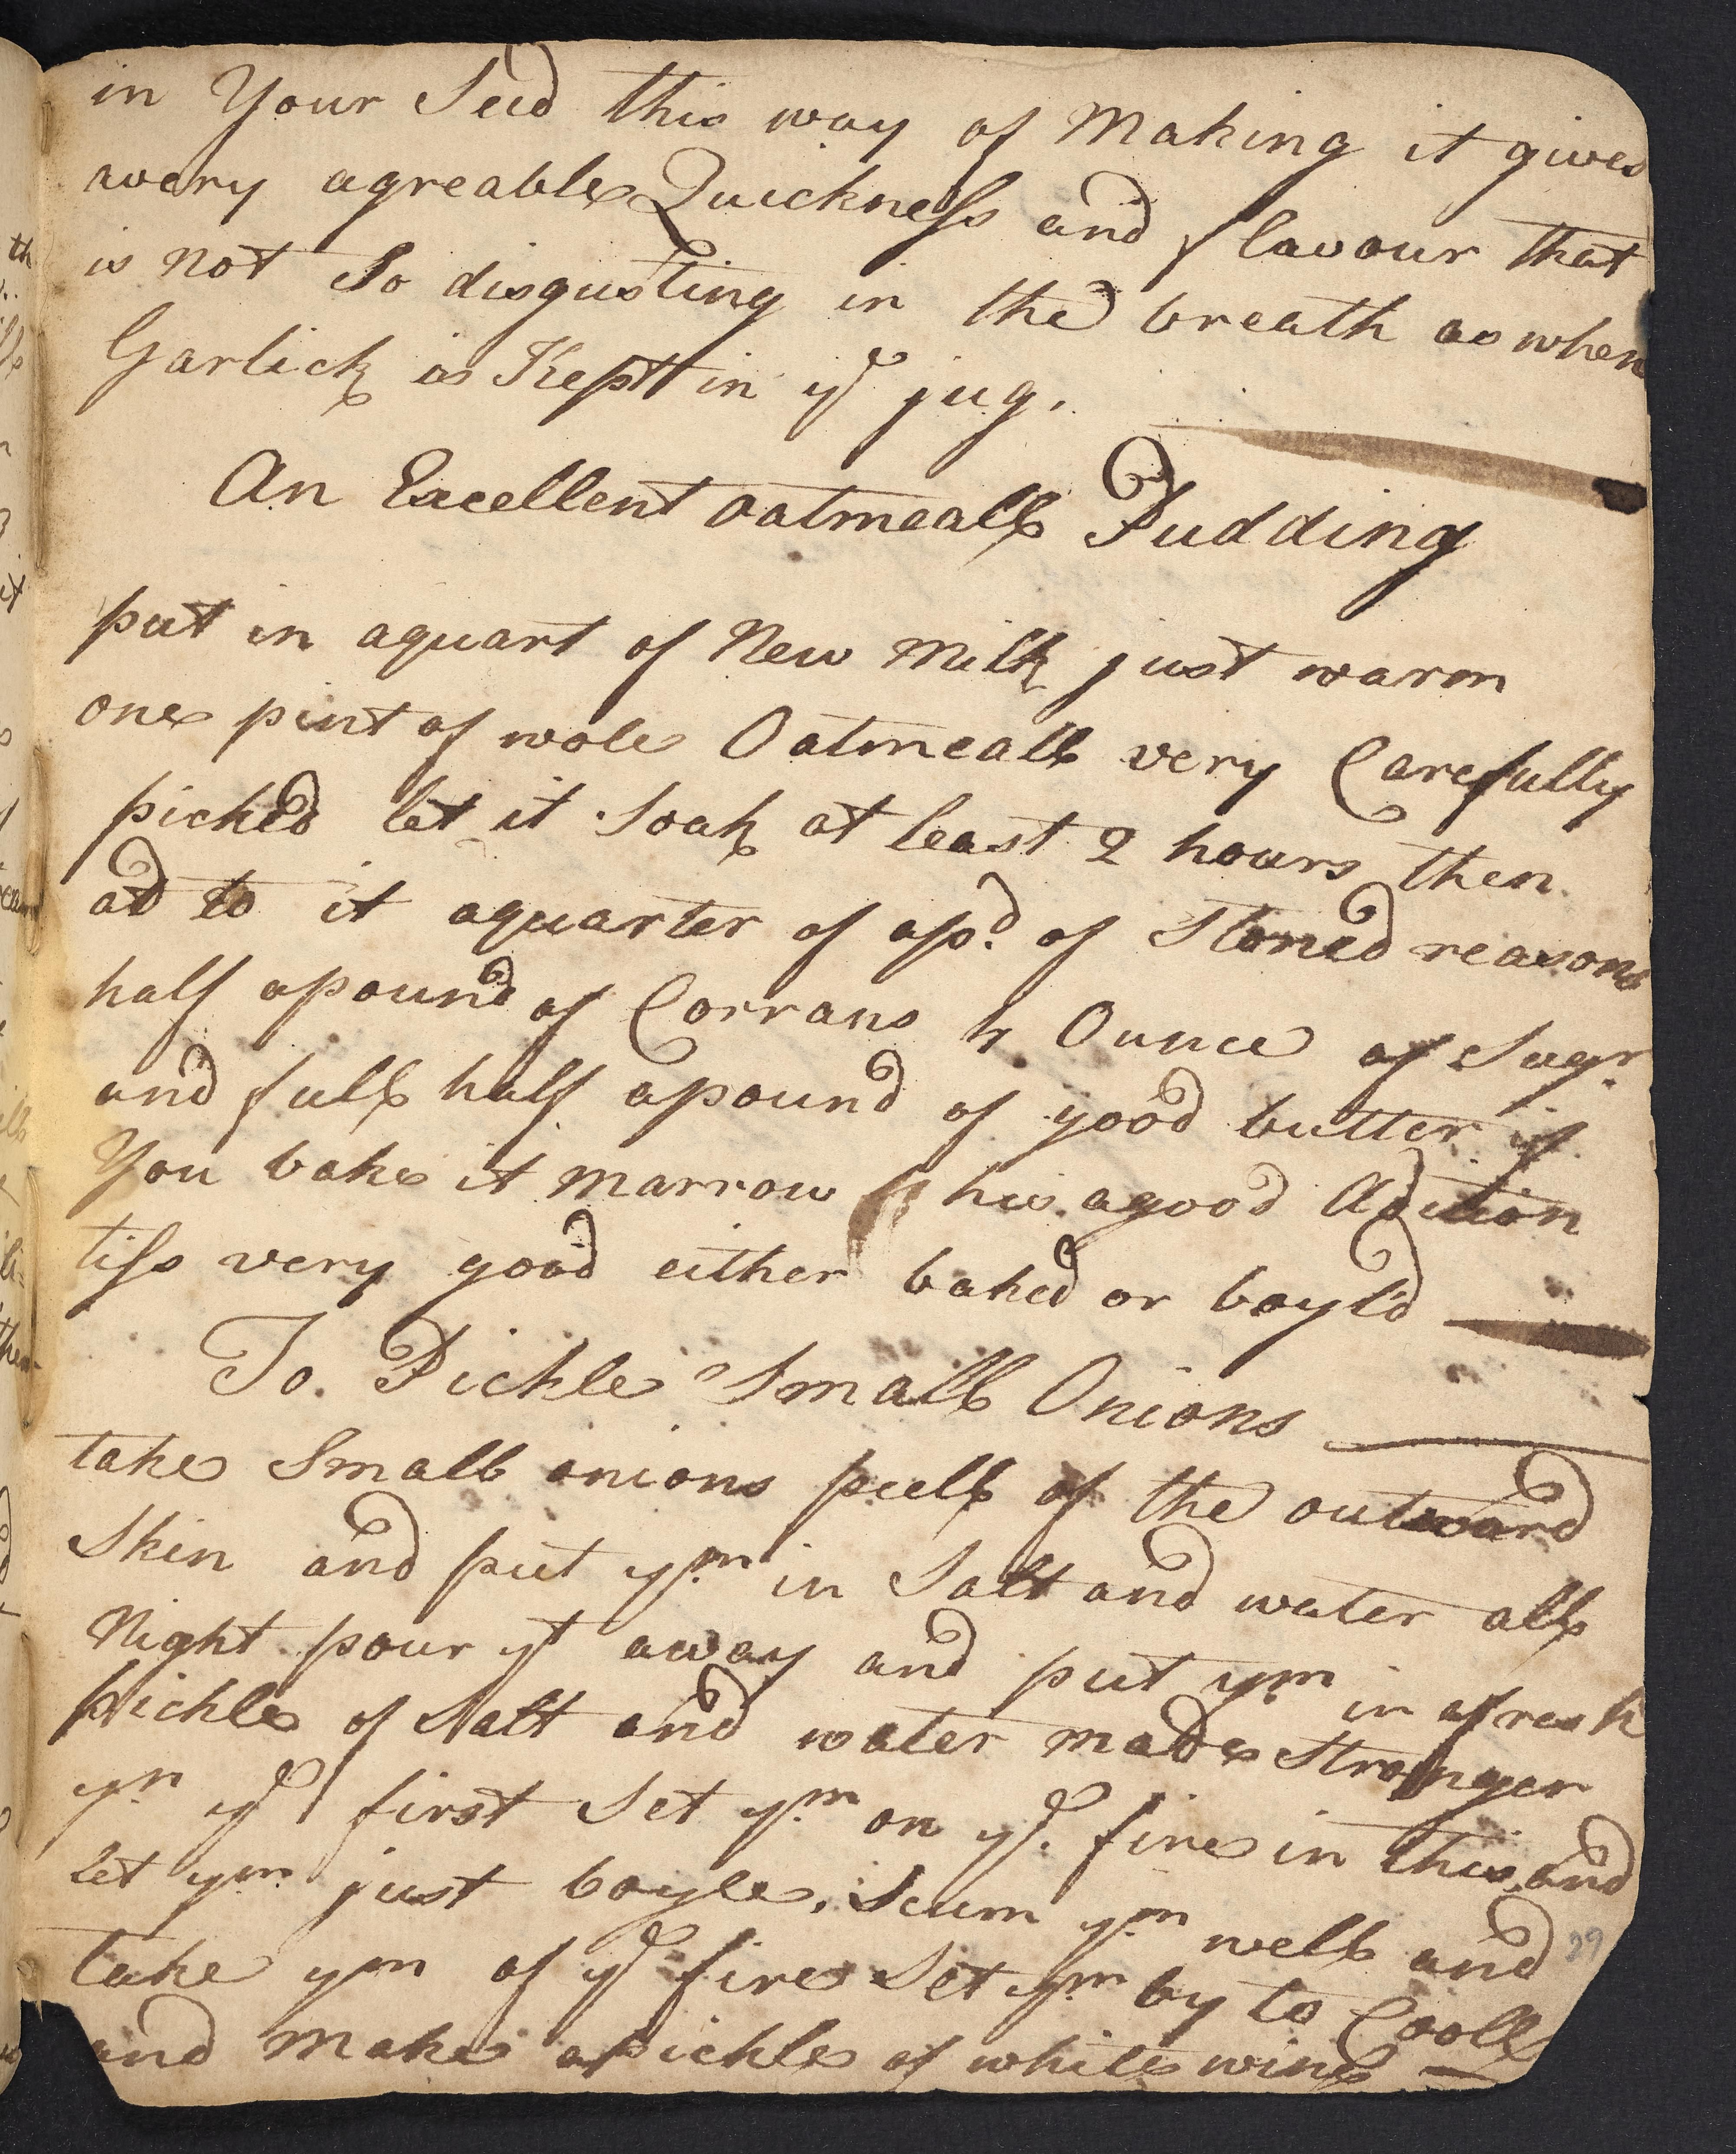 in Your Seed this way of Making it gives
avery agreable Quickness and flavour that
is not So disgusting in the breath as when
Garlick is Kept in ye jug.
An Excellent oatmeall Pudding
put in aquart of New Milk just warm
one pint of wole Oatmeall very Carefully
picked let it Soak at least 2 hours then
ad to it aquarter of apd. of Stoned reasons
half apound of Corrans 4 Ounce of Sugr.
and full half apound of good butter if
You bake it marrow his agood Adition
tiss very good either baked or boyld
To Pickle Small Onions
take Small onions peell of the outward
Skin and put ym in Salt and water all
Night pour yt away and put ym in afresh
pickle of Salt and water made Stronger
yn ye first Set ym on ye fire in this and
let ym just boyle, Scum ym well and
take ym of ye fire Set ym by to Cooll
and Make apickle of white wine
29